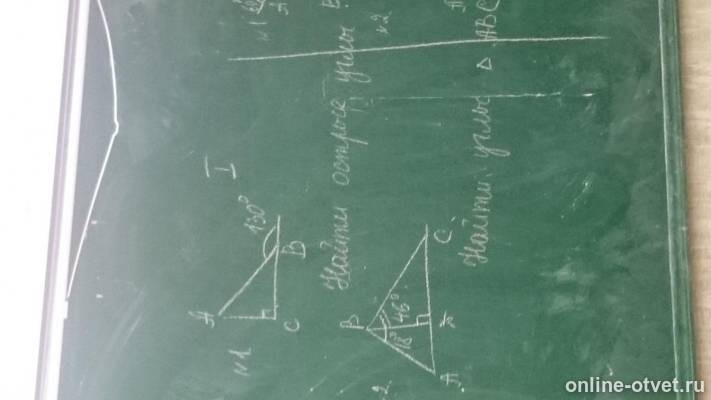 I
№1
A
130°
C
B
Найти острые углы
2
B
18°
46°
A
C
Найти углы △ ABC
№1
A
№2
online-otvet.ru